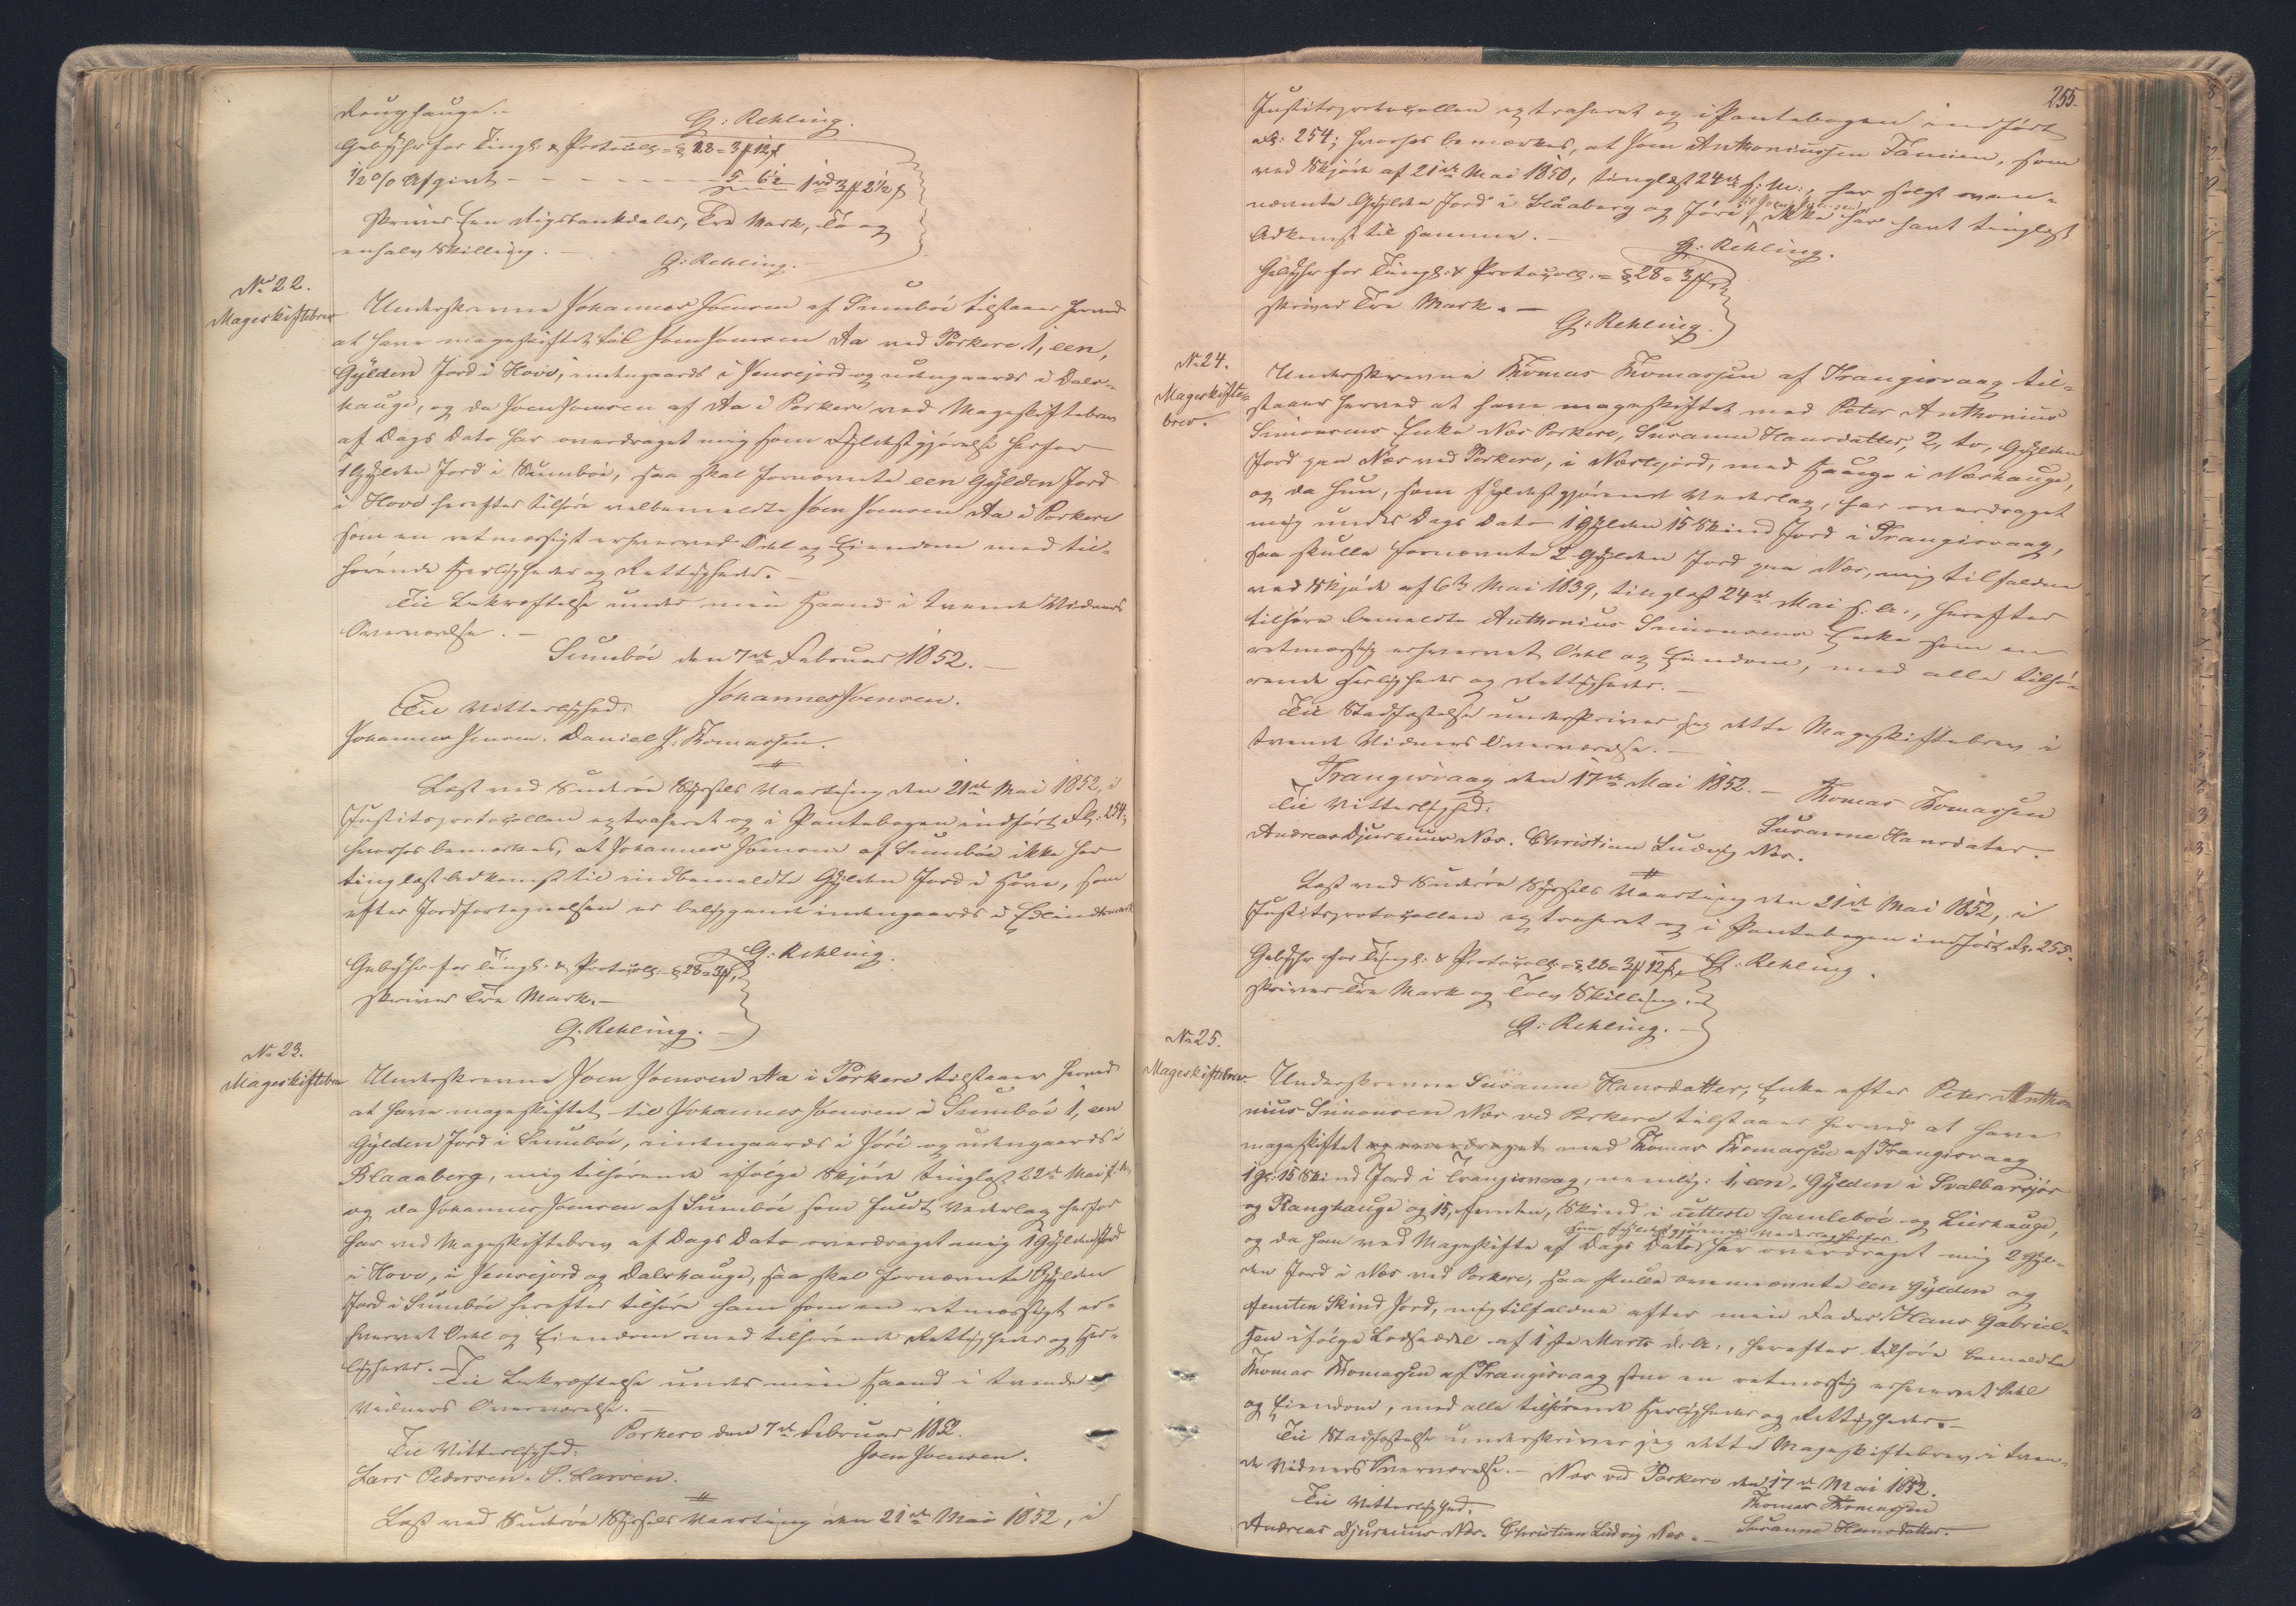 G: Rehling.
Gebyhr for Tingl: & Protocoll: = § 28 = 3 ℔ 12 ß
1/2 % Afgivt - - - - 5 - 6 1/2 1 rd 3 ℔ 2 1/2 ß
skriver Een Rigsbankdaler, Tre Mark, To og
enhalv Skilling. -
G: Rehling.
No 22.
Mageskiftebrev
Underskrevne Johannes Joensen af Sumböe tilstaaer herved
at have mageskiftet til Joen Joensen Aa ved Porkere 1, een,
Gylden Jord i Hove, indengaards i Jensejord og udengaards i Dals-
hauge, og da Joen Joensen af Aa i Porkere ved Mageskiftebrev
af Dags Dato har overdraget mig som Fyldestgjörelse herfor
1 Gylden Jord i Sumböe, saa skal fornævnte een Gylden Jord
i Hove herefter tilhöre velbemeldte Joen Joensen Aa i Porkere
som en retmæssigt erhvervet Odel og Eiendom med til-
hörende Herligheder og Rettigheder. -
Til Bekræftelse under min Haand i tvende Vidners
Overværelse. -
Sumböe den 7de Februar 1852. -
Johannes Joensen.
Til Vitterlighed:
Johannes Jensen. Daniel J: Thomassen.
Læst ved Suderöe Syssels Vaarting den 21de Mai 1852, i
Justitsprotocollen extraheret og i Pantebogen indfört Fol: 254;
hvorhos bemærkes, at Johannes Joensen af Sumböe ikke har
tinglæst Adkomst til indbemeldte Gylden Jord i Hove, som
efter Jordfortegnelsen er beliggende indengaards i
G: Rehling.
Gebyhr for Tingl: & Protocoll: = § 28 = 3 ℔,
skriver Tre Mark. -
G. Rehling. -
No 23.
Mageskiftebrev
Underskrevne Joen Joensen Aa i Porkere tilstaaer herved
at have mageskiftet til Johannes Joensen i Sumböe 1, een
Gylden Jord i Sumböe, indengaards i Jöri og udengaards i
Blaaaberg, mig tilhörende ifölge Skjöde tinglæst 22de Mai f: A:,
og da Johannes Joensen af Sumböe som fuldt Vederlag herfor
har ved Mageskiftebrev af Dags Dato overdraget mig 1 Gylden Jord
i Hove, i Jensejord og Dalshauge, saa skal fornævnte Gylden
Jord i Sumböe herefter tilhöre ham som en retmæssigt er-
hvervet Odel og Eiendom med tilhörende Rettigheder og Her-
ligheder. -
Til Bekræftelse under min Haand i tvende
Vidners Overværelse. -
Porkere den 7de Februar 1852.
Til Vitterlighed:
Joen Joensen.
Lars Pedersen. P. Larsen.
Læst ved Suderöe Syssels Vaarting den 21de Mai 1852, i
255.
Justitsprotocollen extraheret og i Pantebogen indfört
Fol: 254; hvorhos bemærkes, at Joen Anthoniussen Famien, som
ved Skjöde af 21de Mai 1850, tinglæst 24de s: M:, har solgt oven-
nævnte Gylden Jord i Blaaberg og Jöri til Joen Joensen, ikke har havt tinglæst
Adkomst til samme. -
G: Rehling.
Gebyhr for Tingl: & Protocoll: = § 28 = 3 ℔,
skriver Tre Mark. -
G: Rehling.
No 24.
Mageskifte-
brev.
Underskrevne Thomas Thomassen af Trangisvaag til-
staaer herved at have mageskiftet med Peter Anthonius
Simonsens Enke Næs Porkere, Susanne Hansdatter, 2, to, Gylden
Jord paa Næs ved Porkere, i Næstejord, med Hauge i Næshauge,
og da hun, som fyldestgjörende Vederlag, har overdraget
mig under Dags Dato 1 Gylden 15 Skind Jord i Trangisvaag,
saa skulle fornævnte 2 Gylden Jord paa Næs, mig tilfaldne
ved Skjöde af 6te Mai 1839, tinglæst 24de Mai s: A:, herefter
tilhöre bemeldte Anthonius Simonsens Enke som en
retmæssig erhvervet Odel og Eiendom, med alle tilhö-
rende Herligheder og Rettigheder. -
Til Stadfæstelse underskriver jeg dette Mageskiftebrev i
tvende Vidners Overværelse. -
Trangisvaag den 17de Mai 1852. -
Thomas Thomassen
Til Vitterlighed:
Susanne Hansdater.
Andreas Djurhuus Næs. Christian Ludvig Næs.
Læst ved Suderöe Syssels Vaarting den 21de Mai 1852, i
Justitsprotocollen extraheret og i Pantebogen indfört Fol. 255.
G: Rehling.
Gebyhr for Tingl: & Protocoll: = § 28 = 3 ℔ 12 ß,
skriver Tre Mark og Tolv Skilling. -
G: Rehling. -
No 25.
Mageskiftebrev.
Underskrevne Susanne Hansdatter, Enke efter Peter Antho-
nius Simonsen Næs ved Porkere tilstaaer herved at have
mageskiftet og overdraget med Thomas Thomassen af Trangisvaag
1 Gl: 15 Skind Jord i Trangisvaag, nemlig: 1, een, Gylden i Svalbarsjör
og Ranghauge og 15, femten, Skind i utteste Gamleböe og Lishauge,
og da han ved Mageskifte af Dags Dato som fyldestgjörende Vederlag herfor har overdraget mig 2 Gyl-
den Jord i Næs ved Porkere, saa skulle ovennævnte een Gylden og
femten Skind Jord, mig tilfaldne efter min Fader Hans Gabriel-
sen ifölge Lodseddel af 1ste Marts d: A:, herefter tilhöre bemeldte
Thomas Thomassen af Trangisvaag som en retmæssig erhvervet Odel
og Eiendom, med alle tilhörende Herligheder og Rettigheder. -
Til Stadfæstelse underskriver jeg dette Mageskiftebrev i tven-
de Vidners Overværelse. - Næs ved Porkere den 17de Mai 1852.
Til Vitterlighed:
Thomas Thomassen
Andreas Djurhuus Næs. Christian Ludvig Næs. -
Susanne Hansdatter.